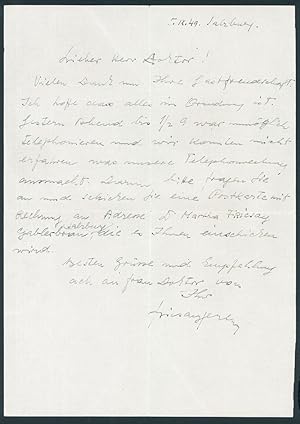 5.IX.49. Salzburg.
Lieber Herr Doktor!
Vielen Dank um Ihre Gastfreundschaft.
Ich hoffe das alles in Ordnung ist.
Gestern Abend bis 1/2 9 war unmöglich
telephonieren und wir konnten nicht
erfahren was unsere Telephonrechnung
ausmacht. Darum bitte fragen Sie
an und schicken Sie eine Postkarte mit
Rechnung an Adresse Dr
Salzburg
Gablerbräu, die es Ihnen einschicken
wird.
Besten Grüsse und Empfehlung
ach an frau Doktor von
Ihr